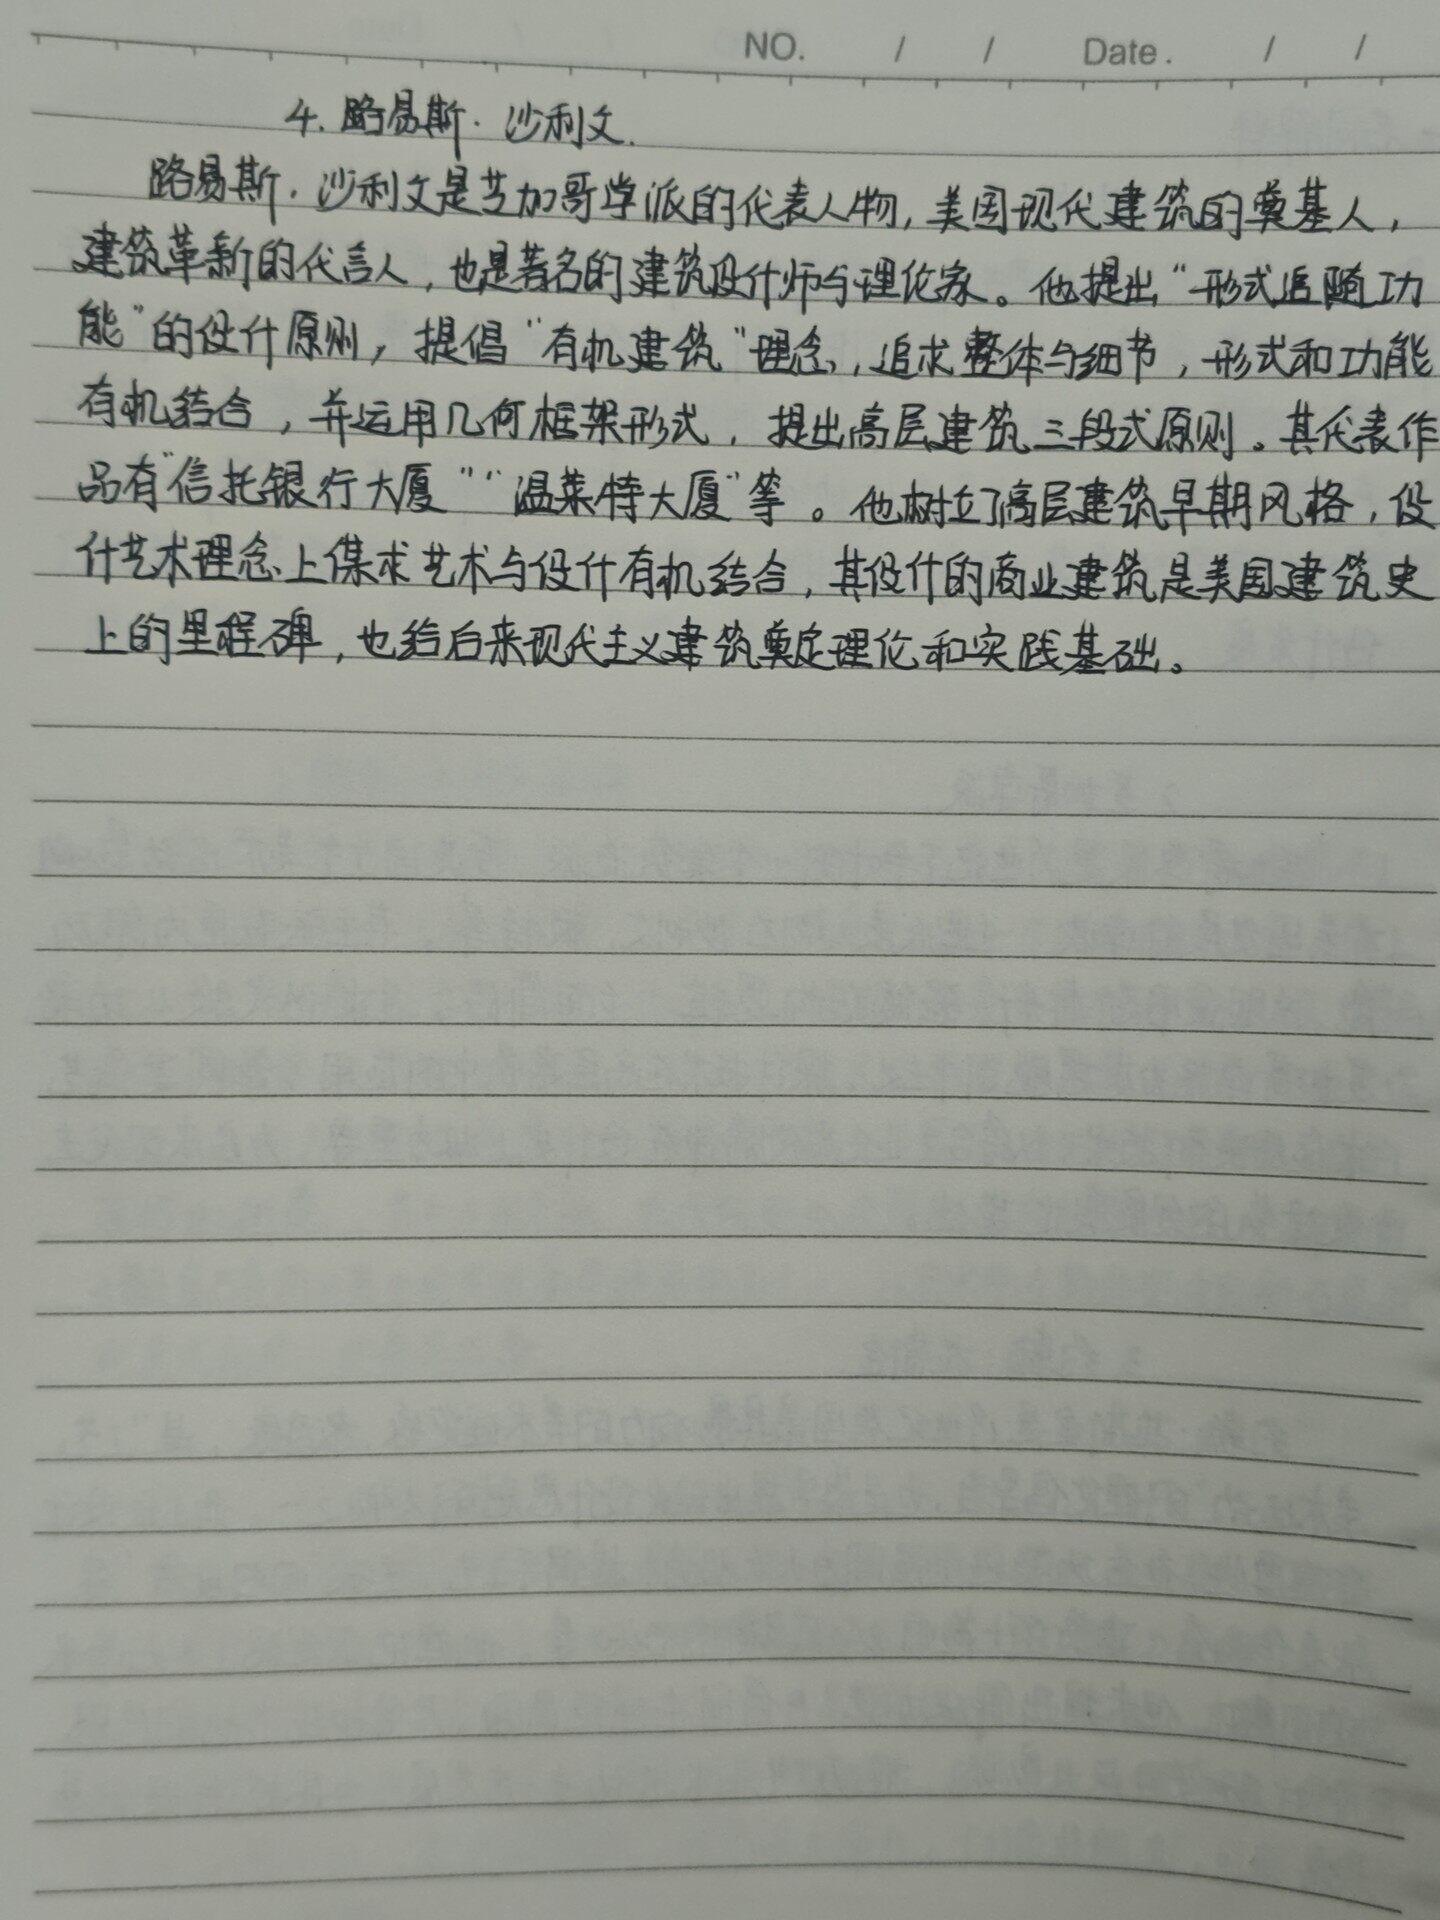 NO. / / Date. / /
4. 路易斯·沙利文.
路易斯·沙利文是芝加哥学派的代表人物,美国现代建筑的奠基人,
建筑革新的代言人,也是著名的建筑设计师与理论家。他提出“形式追随功
能”的设计原则,提倡“有机建筑”理念,追求整体与细节,形式和功能
有机结合,并运用几何框架形式,提出高层建筑三段式原则。其代表作
品有“信托银行大厦”“温莱特大厦”等。他树立了高层建筑早期风格,设
计艺术理念上谋求艺术与设计有机结合,其设计的商业建筑是美国建筑史
上的里程碑,也给后来现代主义建筑奠定理论和实践基础。